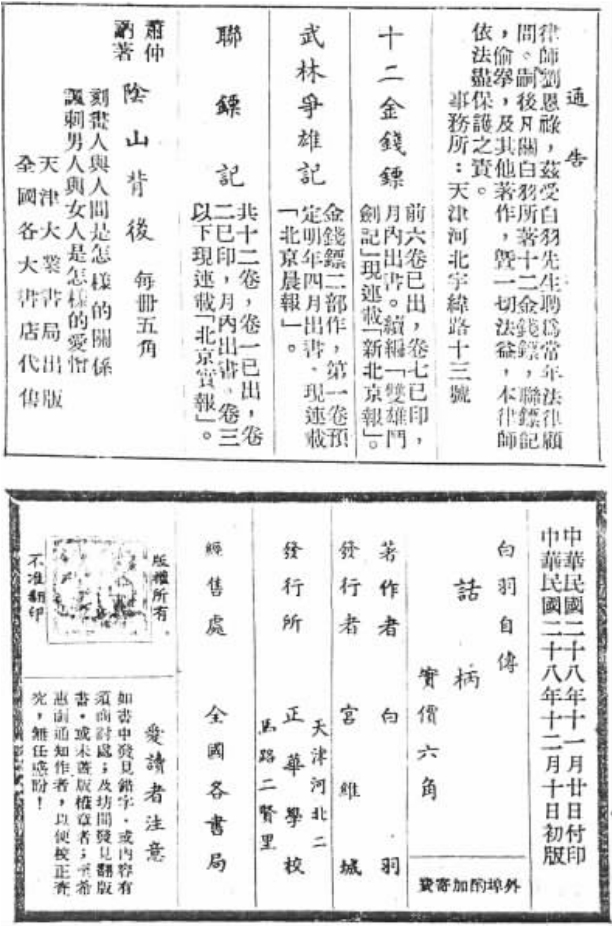 通告
律師劉恩祿,茲受白羽先生聘爲常年法律顧
問。嗣後凡關白羽所著十二金錢鏢,聯鏢記
,偷拳,及其他著作,暨一切法益,本律師
依法盡保護之責。
事務所:天津河北宇緯路十三號
十二金錢鏢
前六卷已出,卷七已印,
月內出書。續編「雙雄鬥
劍記」現連載「新北京報」。
武林爭雄記
金錢鏢二部作,第一卷預
定明年四月出書、現連載
「北京晨報」。
聯鏢記
共十二卷,卷一已出,卷
二已印,月內出書。卷三
以下現連載「北京實報」。
蕭仲
訥著
陰山背後
每冊五角
刻畫人與人間是怎樣的關係
諷刺男人與女人是怎樣的愛憎
天津大業書局出版
全國各大書店代售
中華民國二十八年十一月廿日付印
中華民國二十八年十二月十日初版
白羽自傳
話柄
實價六角
外埠酌加寄費
著作者 白羽
發行者 宮維城
發行所 正華學校
天津河北二
馬路二賢里
經售處 全國各書局
版權所有
不准翻印
愛讀者注意
如書中發見錯字,或內容有
須商討處;及坊間發見翻版
書,或未蓋版權章者;希
惠函通知作者,以便校正查
究,無任感盼!